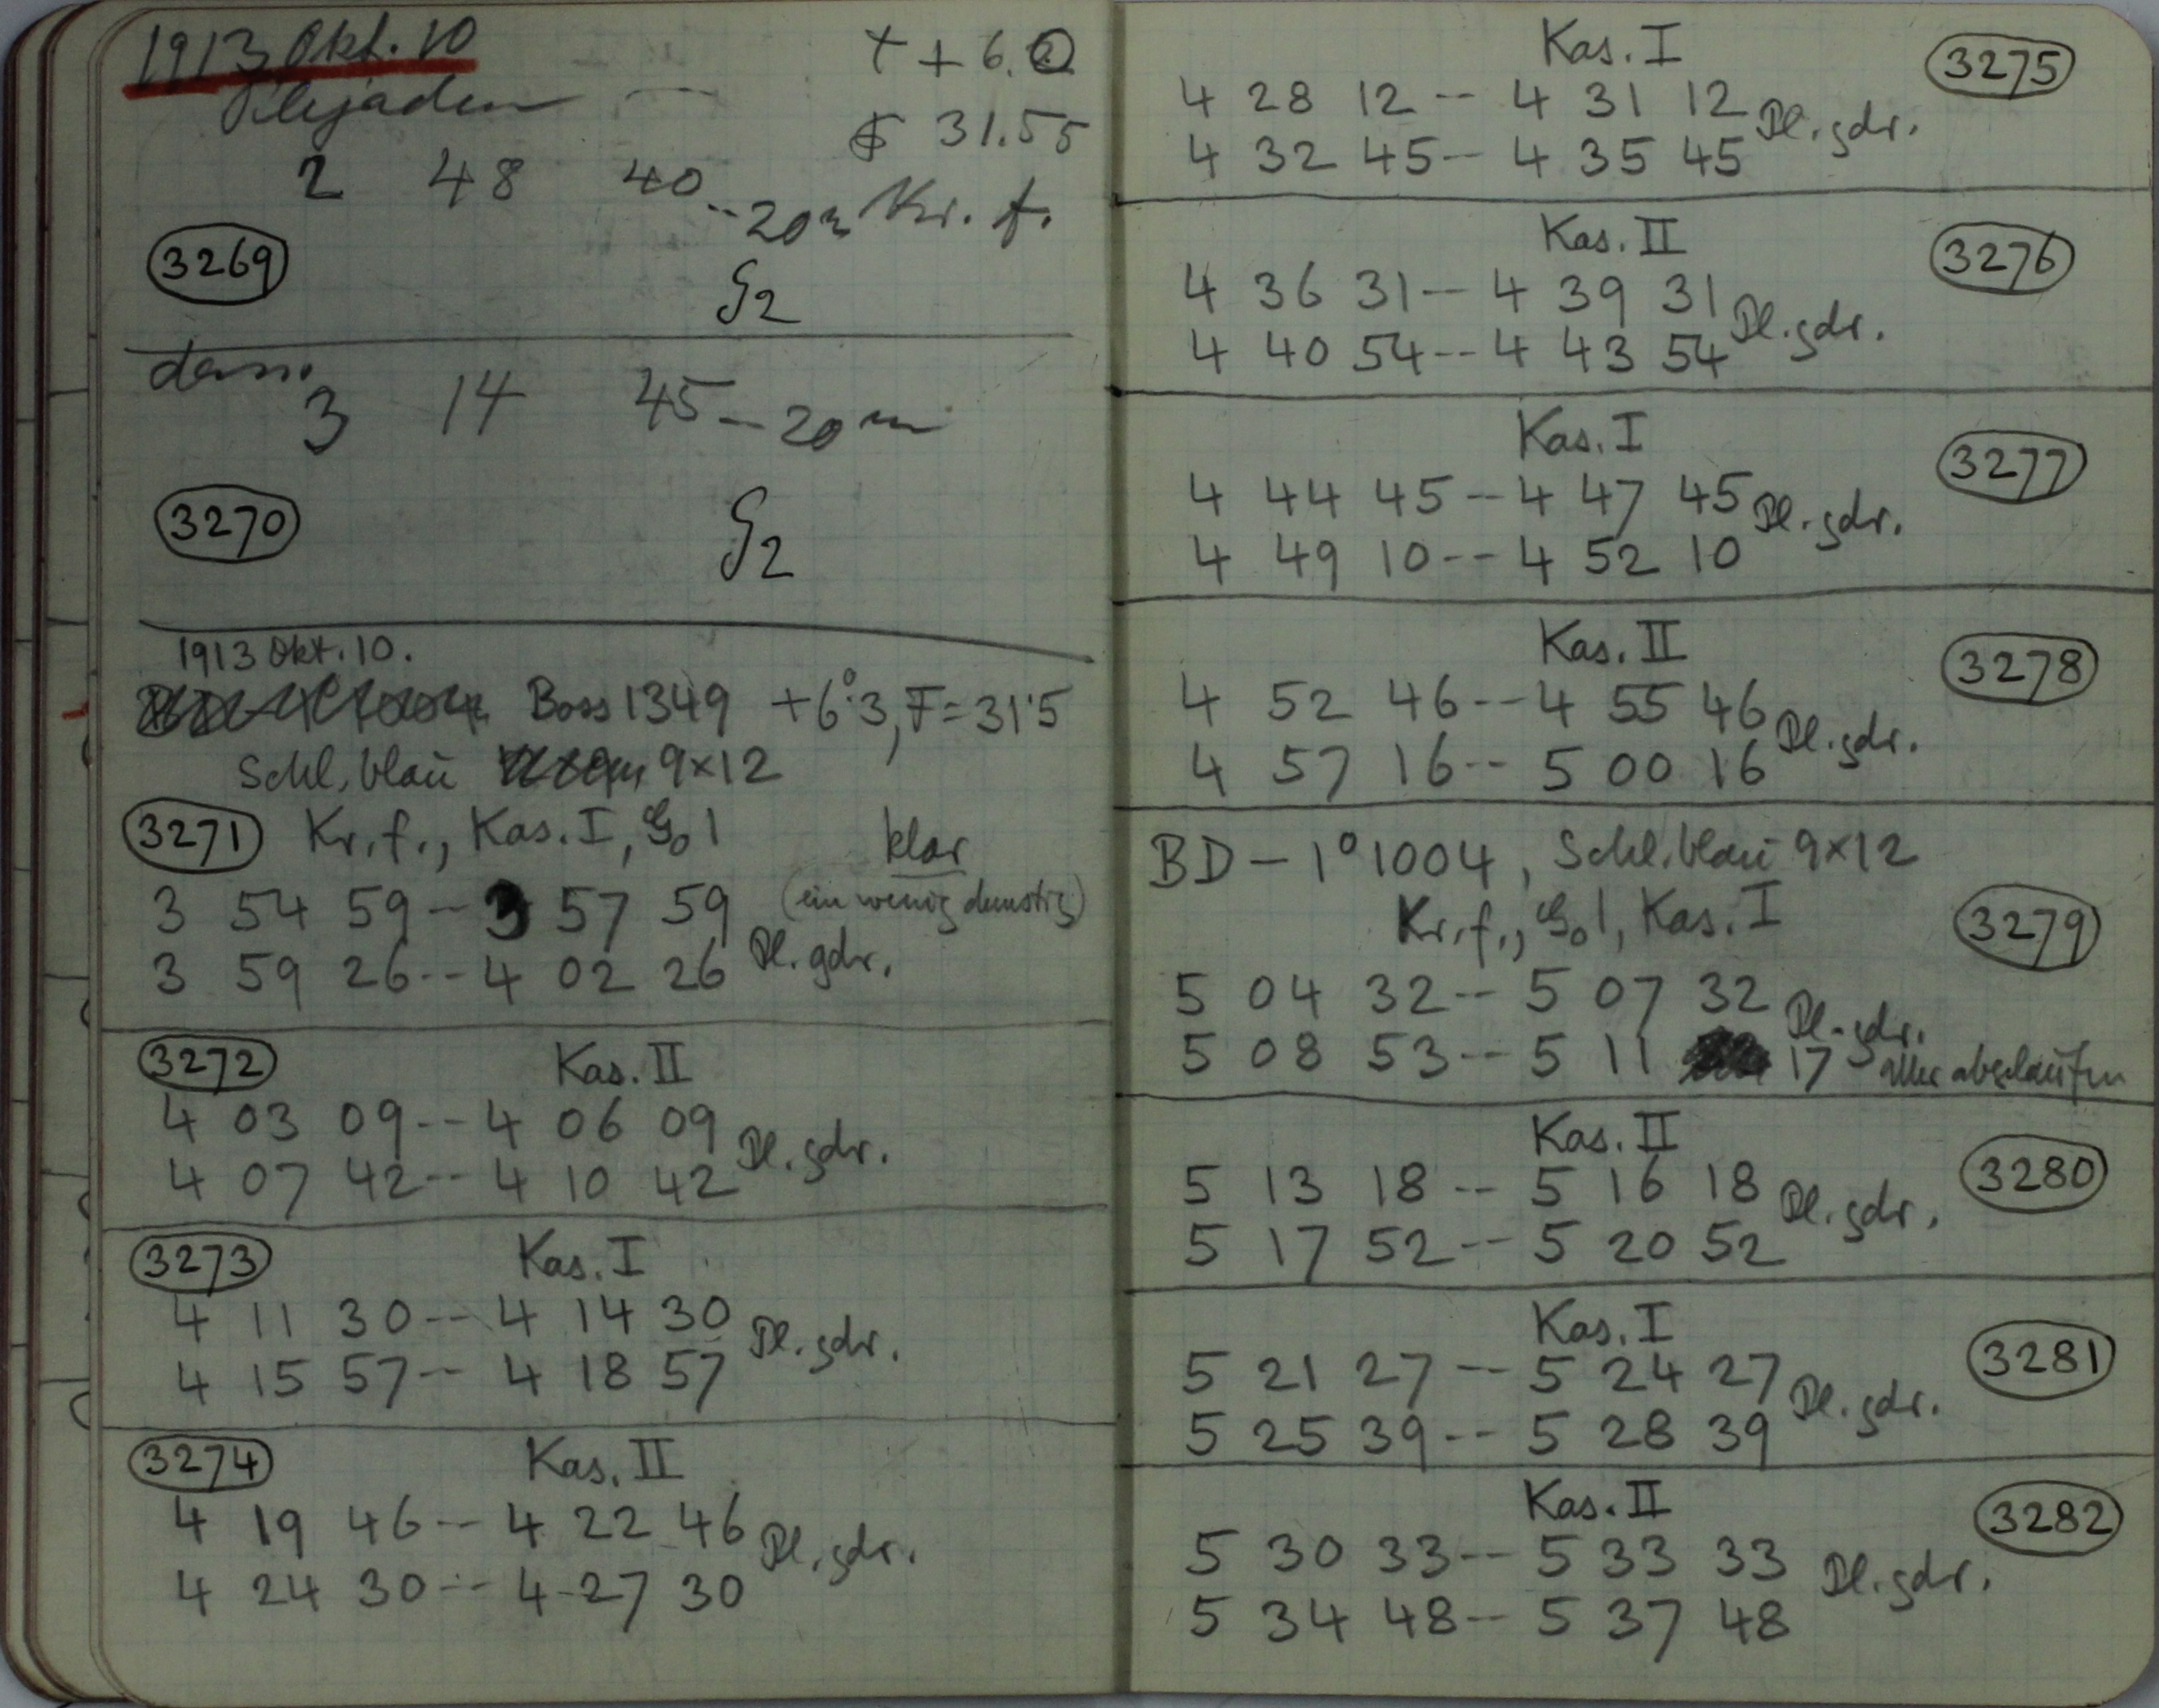 1913 Okt. 10
Plejaden
t + 6.0
F 31.55
2 48 40 -- 20m Kr. f.
3269
G2
dass.
3 14 45 -- 20m
3270
G2
1913 Okt. 10.
Boss 1349 +6°.3, F = 31.5
Schl. blau 9×12
3271 Kr. f., Kas. I, G01 klar
(ein wenig dunstig)
3 54 59 -- 3 57 59
3 59 26 -- 4 02 26 Pl. gdr.
3272 Kas. II
4 03 09 -- 4 06 09
4 07 42 -- 4 10 42 Pl. gdr.
3273 Kas. I
4 11 30 -- 4 14 30
4 15 57 -- 4 18 57 Pl. gdr.
3274 Kas. II
4 19 46 -- 4 22 46
4 24 30 -- 4 27 30 Pl. gdr.
Kas. I 3275
4 28 12 -- 4 31 12
4 32 45 -- 4 35 45 Pl. gdr.
Kas. II 3276
4 36 31 -- 4 39 31
4 40 54 -- 4 43 54 Pl. gdr.
Kas. I 3277
4 44 45 -- 4 47 45
4 49 10 -- 4 52 10 Pl. gdr.
Kas. II 3278
4 52 46 -- 4 55 46
4 57 16 -- 5 00 16 Pl. gdr.
BD - 1° 1004, Schl. blau 9×12
Kr. f., G01, Kas. I 3279
5 04 32 -- 5 07 32 Pl. gdr.
5 08 53 -- 5 11 17 abgelaufen
Kas. II 3280
5 13 18 -- 5 16 18
5 17 52 -- 5 20 52 Pl. gdr.
Kas. I 3281
5 21 27 -- 5 24 27
5 25 39 -- 5 28 39 Pl. gdr.
Kas. II 3282
5 30 33 -- 5 33 33
5 34 48 -- 5 37 48 Pl. gdr.